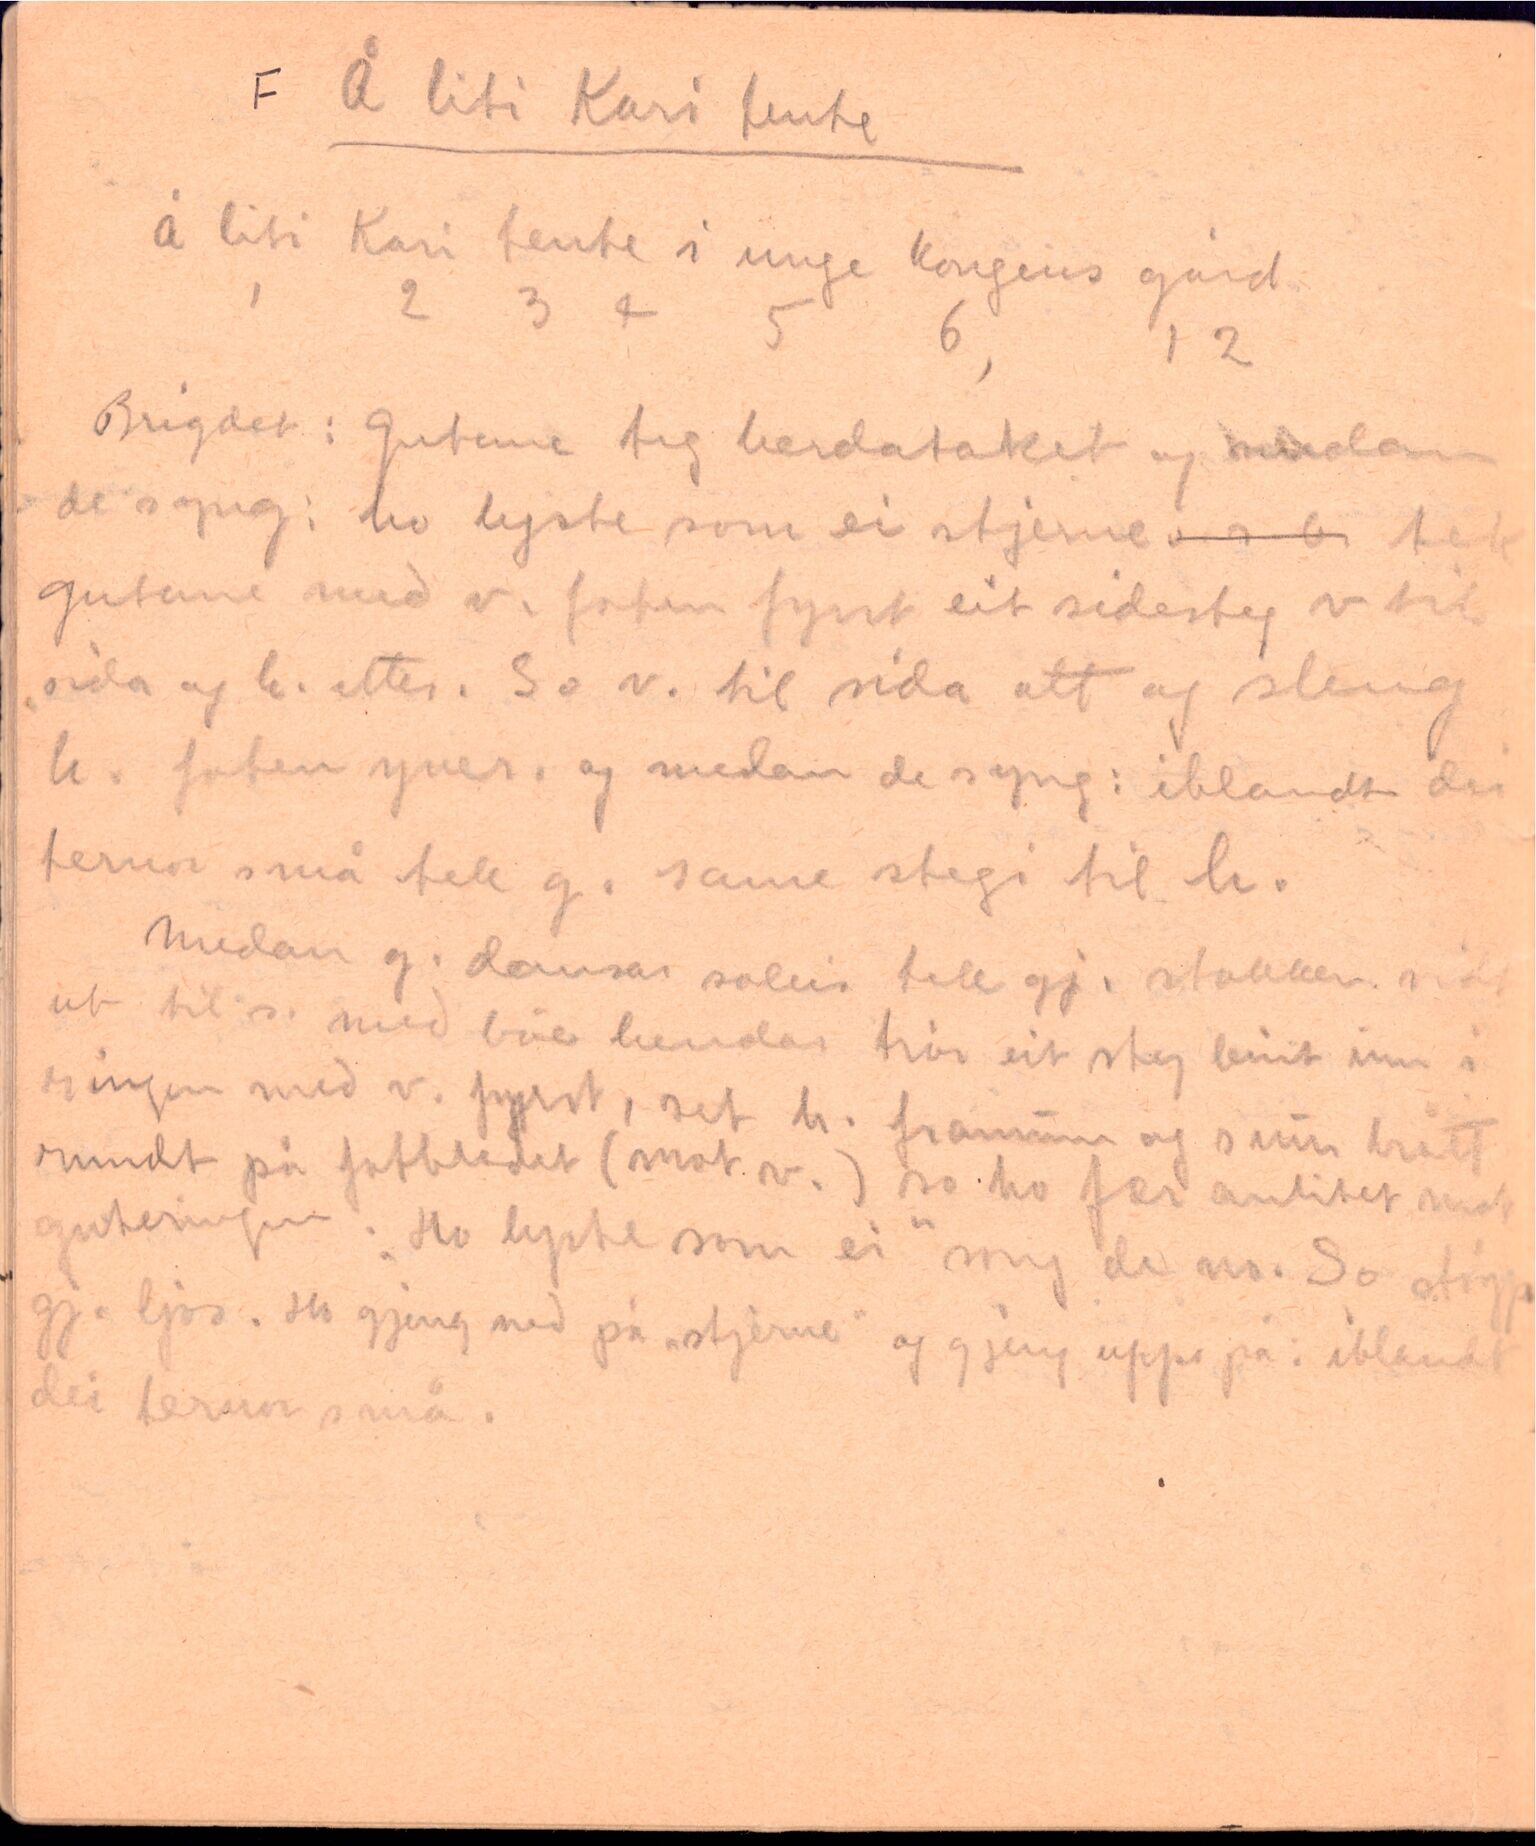 F Å liti Kari tente
Å liti Kari tente i unge kongens gård
1 2 3 4 5 6, 1 2
Brigdet: Gutane tæg herdataket og medan
de syng: ho lyste som ei stjerne tek
gutane med v. foten fyrst eit sidesteg v til
sida og h. etter. So v. til sida att og sleng
h. foten yver. og medan de syng: iblandt dei
ternor små tek g. same stegi til h.
Medan g. dansar soleis tek gj. stakken vidt
ut til s. med båe hendar trør eit steg beint inn i
ringen med v. fyrst, set h. framum og snur brått
rundt på fotbledet (mot v.) so ho fær andlitet mot
guteringen. "Ho lyste som ei" song de no. So støyp
gj. ljos. Ho gjeng ned på "stjerne" og gjeng upp på: iblandt
dei ternor små.